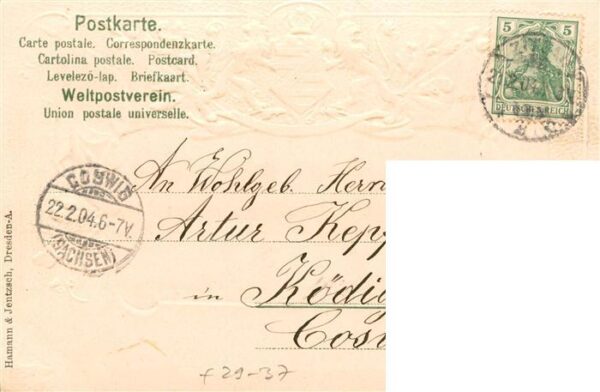 Postkarte.
Carte postale. Correspondenzkarte.
Cartolina postale. Postcard.
Levelező-lap. Briefkaart.
Weltpostverein.
Union postale universelle.
5 5
DEUTSCHES REICH
COSWIG
22.2.04.6-7V.
(SACHSEN)
An Wohlgeb. Herrn
Artur Kepp
in Ködi
Cos
Hamann & Jentzsch, Dresden-A.
f 29-37